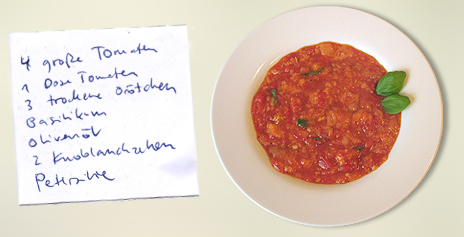 4 große Tomaten
1 Dose Tomaten
3 trockene Brötchen
Basilikum
Olivenöl
2 Knoblauchzehen
Petersilie